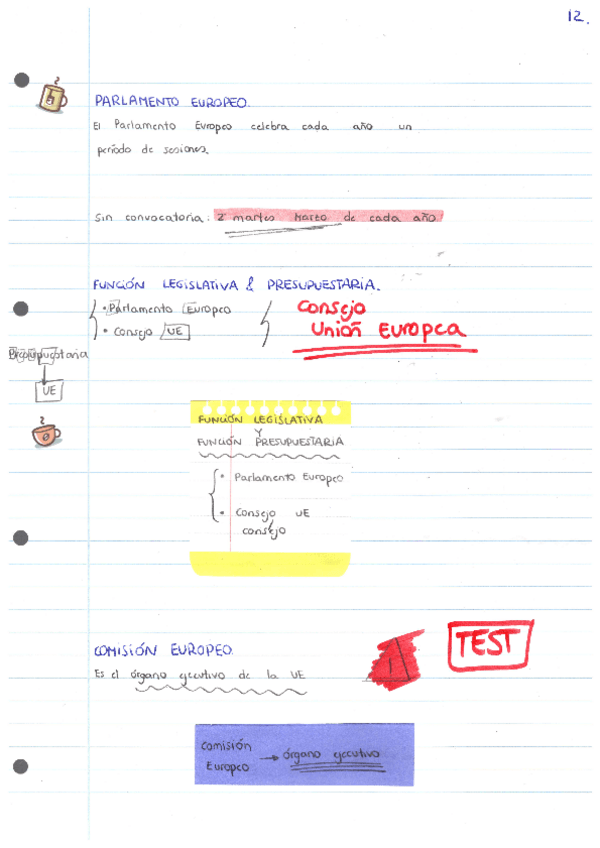 12.
PARLAMENTO EUROPEO.
El Parlamento Europeo celebra cada año un
período de sesiones.
Sin convocatoria: 2º martes marzo de cada año.
FUNCIÓN LEGISLATIVA & PRESUPUESTARIA.
• Parlamento Europeo
• Consejo UE
Consejo
Unión Europea
Presupuestaria
UE
FUNCIÓN LEGISLATIVA
Y
FUNCIÓN PRESUPUESTARIA
• Parlamento Europeo
• Consejo UE
consejo
COMISIÓN EUROPEO.
Es el órgano ejecutivo de la UE
TEST
Comisión
Europeo → órgano ejecutivo